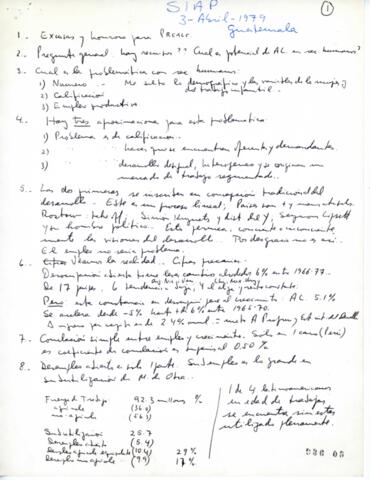 SIAP
3-Abril-1979
Guatemala
1
1. Excusas y honores para PREALC
2. Pregunta general hay recursos?? Cual a potencial de AL en rec humanos?
3. Cual a la problematica con rec humanos:
1) Numero -- Me salto la demografia y las variables de la mujer, y del trabajo infantil.
2) Calificación
3) Empleo productivo
4. Hay tres aproximaciones para esta problematica
1) Problema es de calificación.
2) hacer que se encuentren oferentes y demandantes.
3) desarrollo desigual, heterogeneo y se origina un
mercado de trabajo segmentado.
5. Las dos primeras se insertan en concepción tradicional del
desarrollo. Este es un proceso lineal; Paises son + y menos
Rostow take off, Simon Kuznets y dist del Y, Seymour Lipsett
y su hombre politico. Esto permea, conciente o inconciente
mente las visiones del desarrollo. Por desgracia no es asi.
El empleo no seria problema.
6. Veamos la realidad. Cifras precarias.
Desocupación abierta tiene leves cambios alrededor 6% entre 1966-77.
De 17 paises, 6 tendencia 4 el alza y resto constante.
Pero esta constancia en desocupación para el crecimiento AL 5.1%
Se acelera desde 5% hasta 6% entre 1965-70.
per capita es de 2.4% anual
7. Correlación simple entre empleo y crecimiento. Solo en 1 caso (Perú)
es coeficiente de correlación es superior al 0.50%
8. Desempleo abierto es solo 1 parte. Subempleo es la grande en
subutilización de M. de Obra.
Fuerza d Trabajo 92.3 millones %
agricola (36.0)
no-agricola (56.3)
Subutilización 25.7
Desempleo abierto (5.4)
Desempleo agricola equivalente (10.4) 29%
Desempleo no agricola (9.9) 17%
1 de 4 latinoamericanos
en edad de trabajar
se encuentra sin estar
utilizado plenamente.